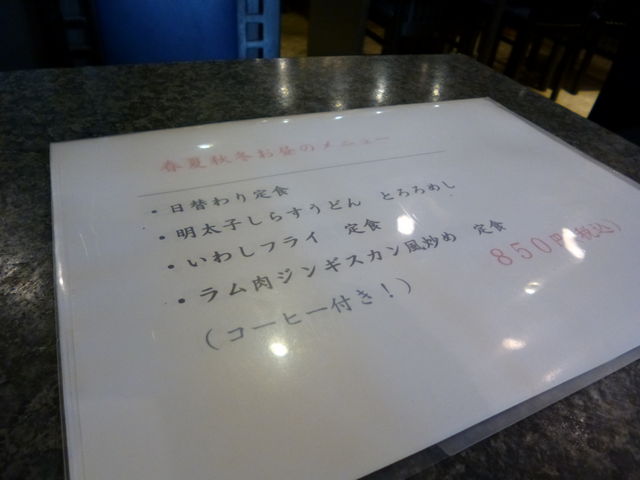 春夏秋冬お昼のメニュー
・日替わり定食
・明太子しらすうどん とろろめし
・いわしフライ 定食
・ラム肉ジンギスカン風炒め 定食
850円(税込)
(コーヒー付き!)